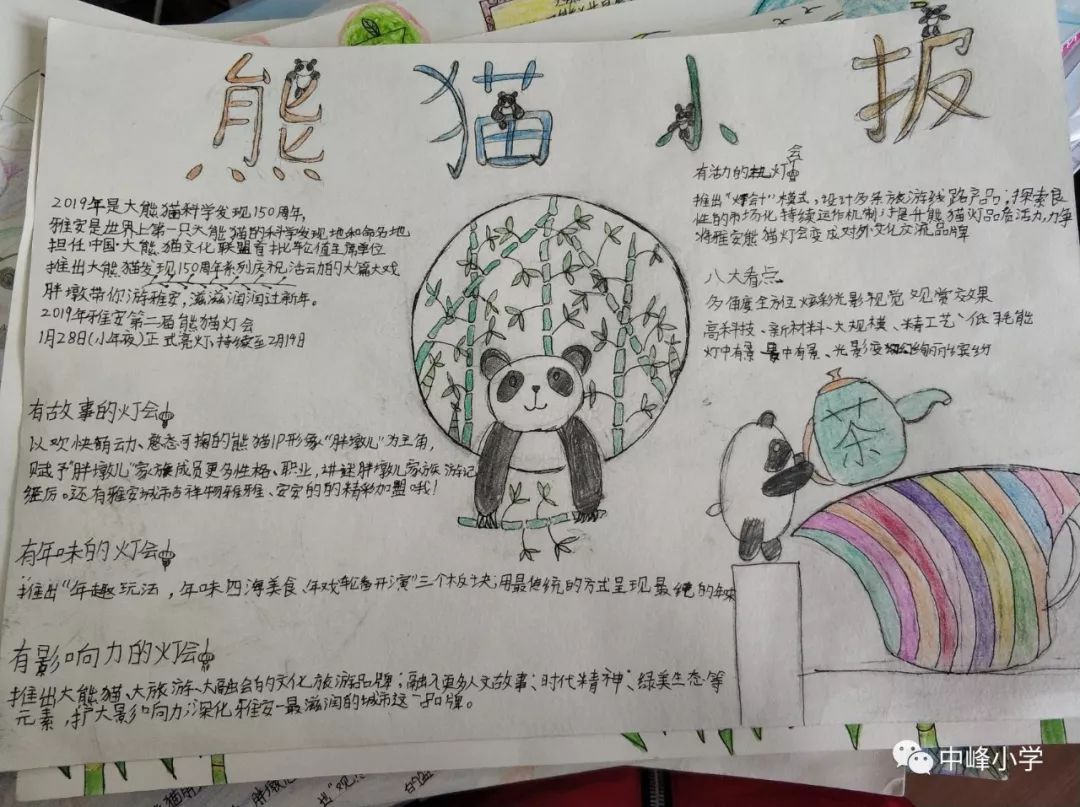 熊猫小报
2019年是大熊猫科学发现150周年,
雅安是世界上第一只大熊猫的科学发现地和命名地
担任中国·大熊猫文化联盟首批轮值主席单位
推出大熊猫发现150周年系列庆祝活动的大篇大戏
胖墩带你游雅安,滋滋润润过新年。
2019年雅安第二届熊猫灯会
1月28日(小年夜)正式亮灯,持续至2月19日
有故事的灯会
以欢快销动、憨态可掬的熊猫IP形象“胖墩儿”为主角,
赋予“胖墩儿”家族成员更多性格、职业,讲述胖墩儿家族游记
经历。还有雅安城市吉祥物雅雅、安安的的精彩加盟哦!
有年味的灯会
推出“年趣玩法,年味四海美食、年戏轮番开演”三个板块,用最传统的方式呈现最纯的年味
有影响力的灯会
推出大熊猫、大旅游、大融会的文化旅游品牌;融入更多人文故事、时代精神、绿美生态等
元素,扩大影响力深化雅安一最滋润的城市这一品牌。
有活力的灯会
推出“灯会+”模式,设计多条旅游线路产品;探索良
性的市场化持续运作机制;提升熊猫灯品看活力,力争
将雅安熊猫灯会变成对外文化交流品牌
八大看点
多角度全方位炫彩光影视觉观赏效果
高科技、新材料、大规模、精工艺、低耗能
灯中有景、景中有景、光影变绚丽缤纷
茶
中峰小学